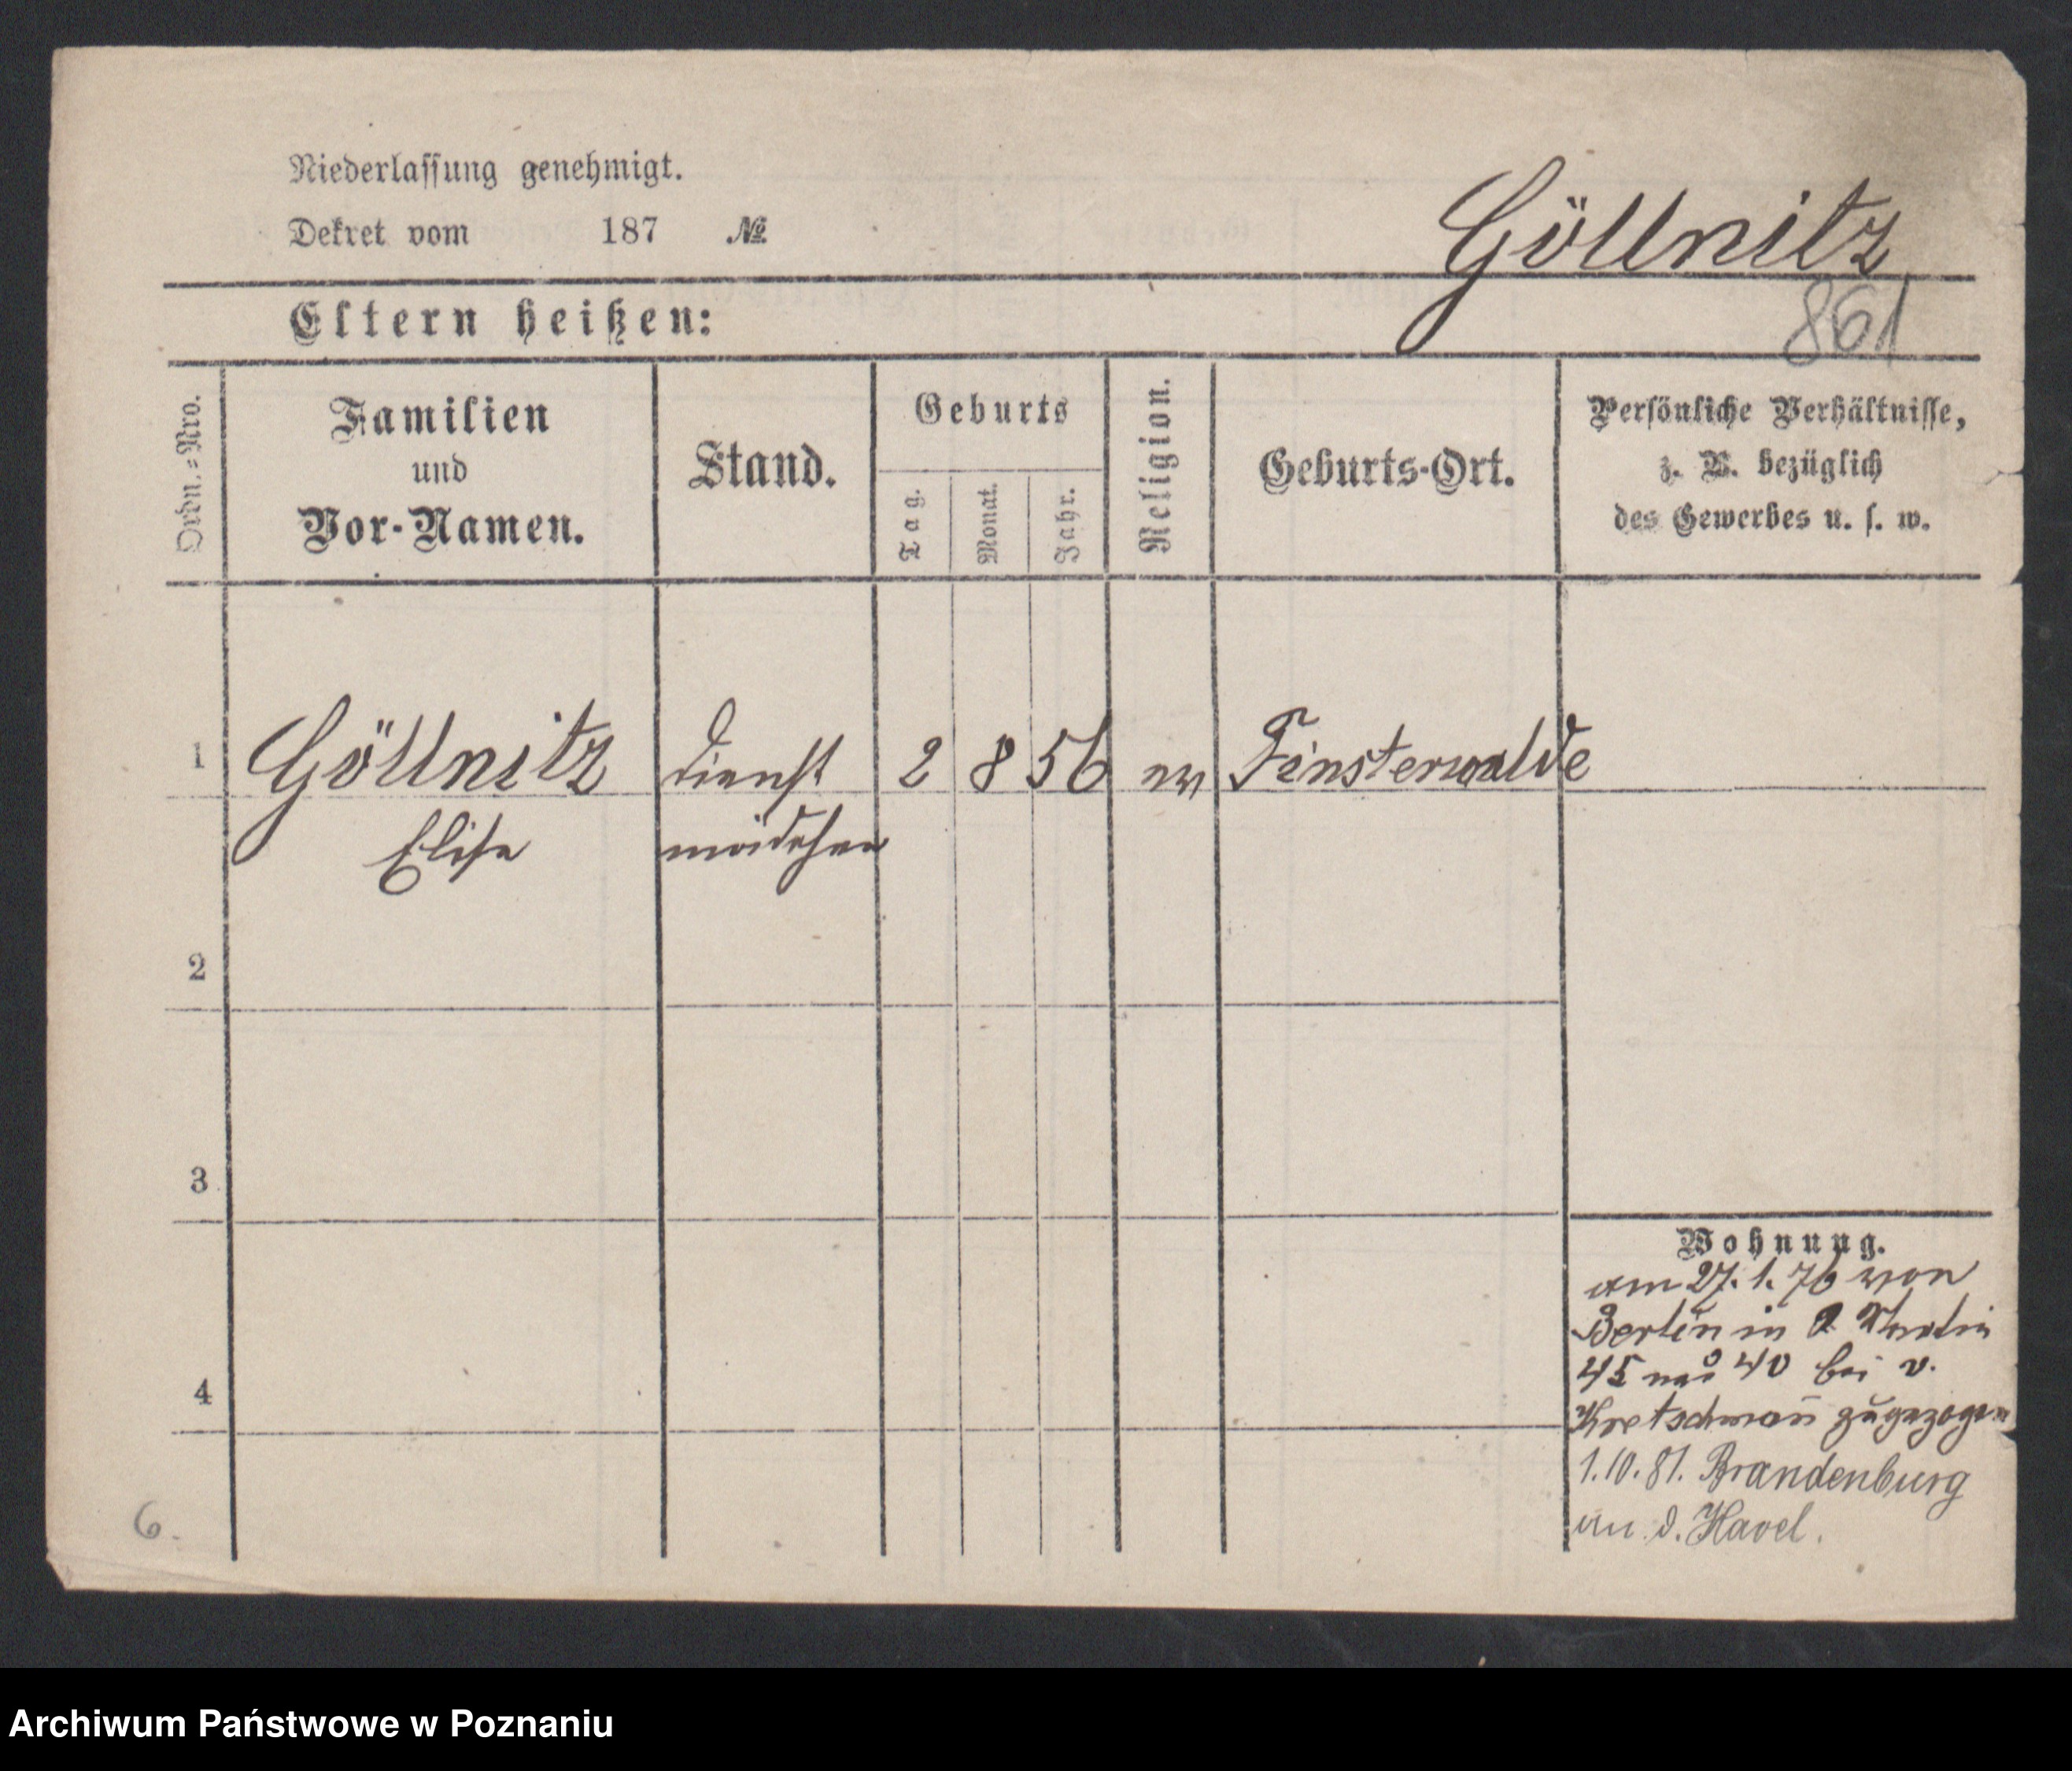 Niederlassung genehmigt.
Dekret vom 187 №
Göllnitz
861
Eltern heißen:
Orden.=Nro.
Familien
und
Vor-Namen.
Stand.
Geburts
Tag.
Monat.
Jahr.
Religion.
Geburts-Ort.
Persönliche Verhältnisse,
z. B. bezüglich
des Gewerbes u. s. w.
1 Göllnitz dienst 2 8 56 ev Finsterwalde
Elise mädchen
2
3
4
Wohnung.
am 27. 1. 76 von
Berlin in
45 und 40 bei v.
Kretschman̄ zugezogen
1. 10. 81. Brandenburg
an d. Havel.
6.
Archiwum Państwowe w Poznaniu